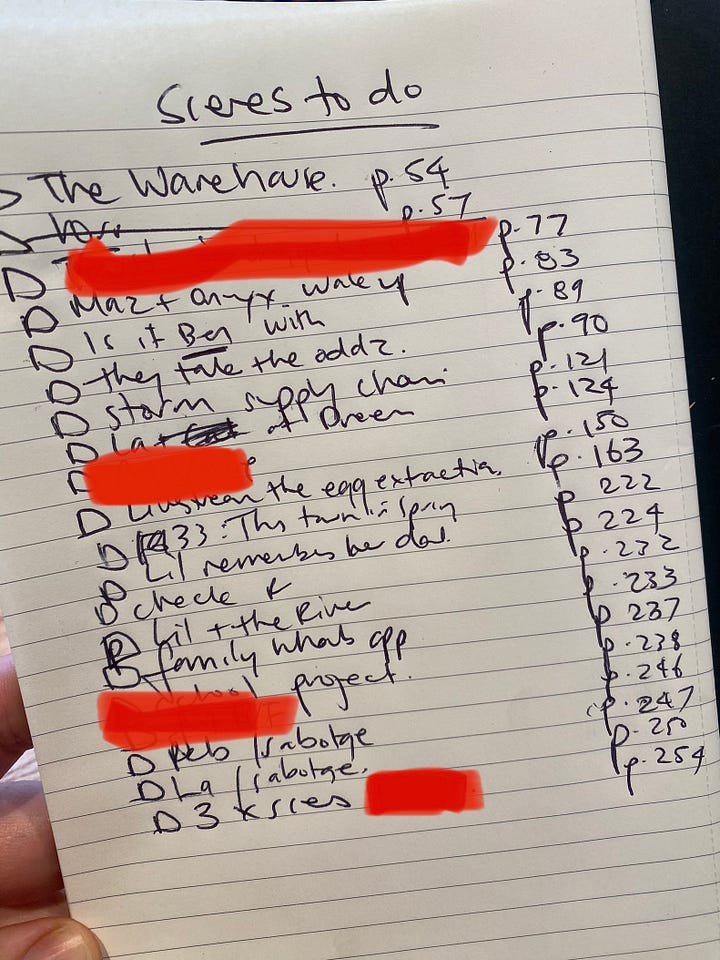 Scenes to do
The Warehouse. p.54
p.57
p.77
Maz + Onyx wake up p.83
Is it Ben with p.89
they take the addz. p.90
storm supply chain p.121
La at Dreen p.124
p.150
Livestream the egg extraction. p.163
33: This town is spin p. 222
Lil remembers her dad. p. 224
check K p. 232
Lil + the River p. 233
family whats app p 237
project. p. 238
p. 246
Reb / sabotge p. 247
La / sabotge. p. 250
3 K scies p. 254